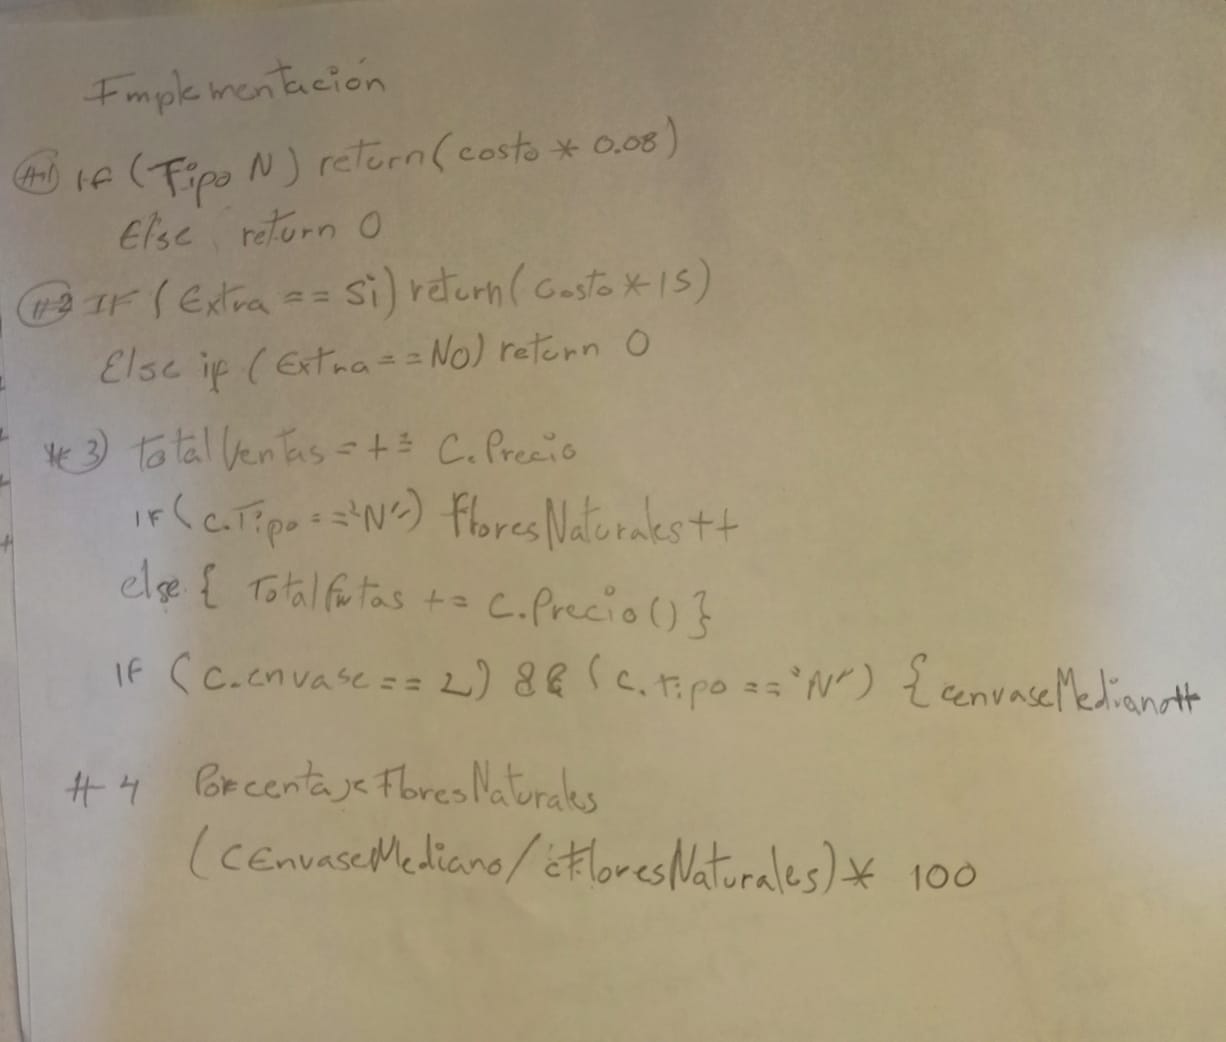 Implementación
#1 If (Tipo N) return (costo * 0.08)
Else return 0
#2 IF (Extra == Si) return (Costo * 15)
Else if (Extra == No) return 0
#3) Total Ventas = += C. Precio
IF (c. Tipo == 'N') Flores Naturales ++
else { Total frutas += C. Precio () }
IF (c. envase == 2) && (c. tipo == 'N') { cenvase Mediano ++
#4 Porcentaje Flores Naturales
(CEnvase Mediano / cFlores Naturales) * 100